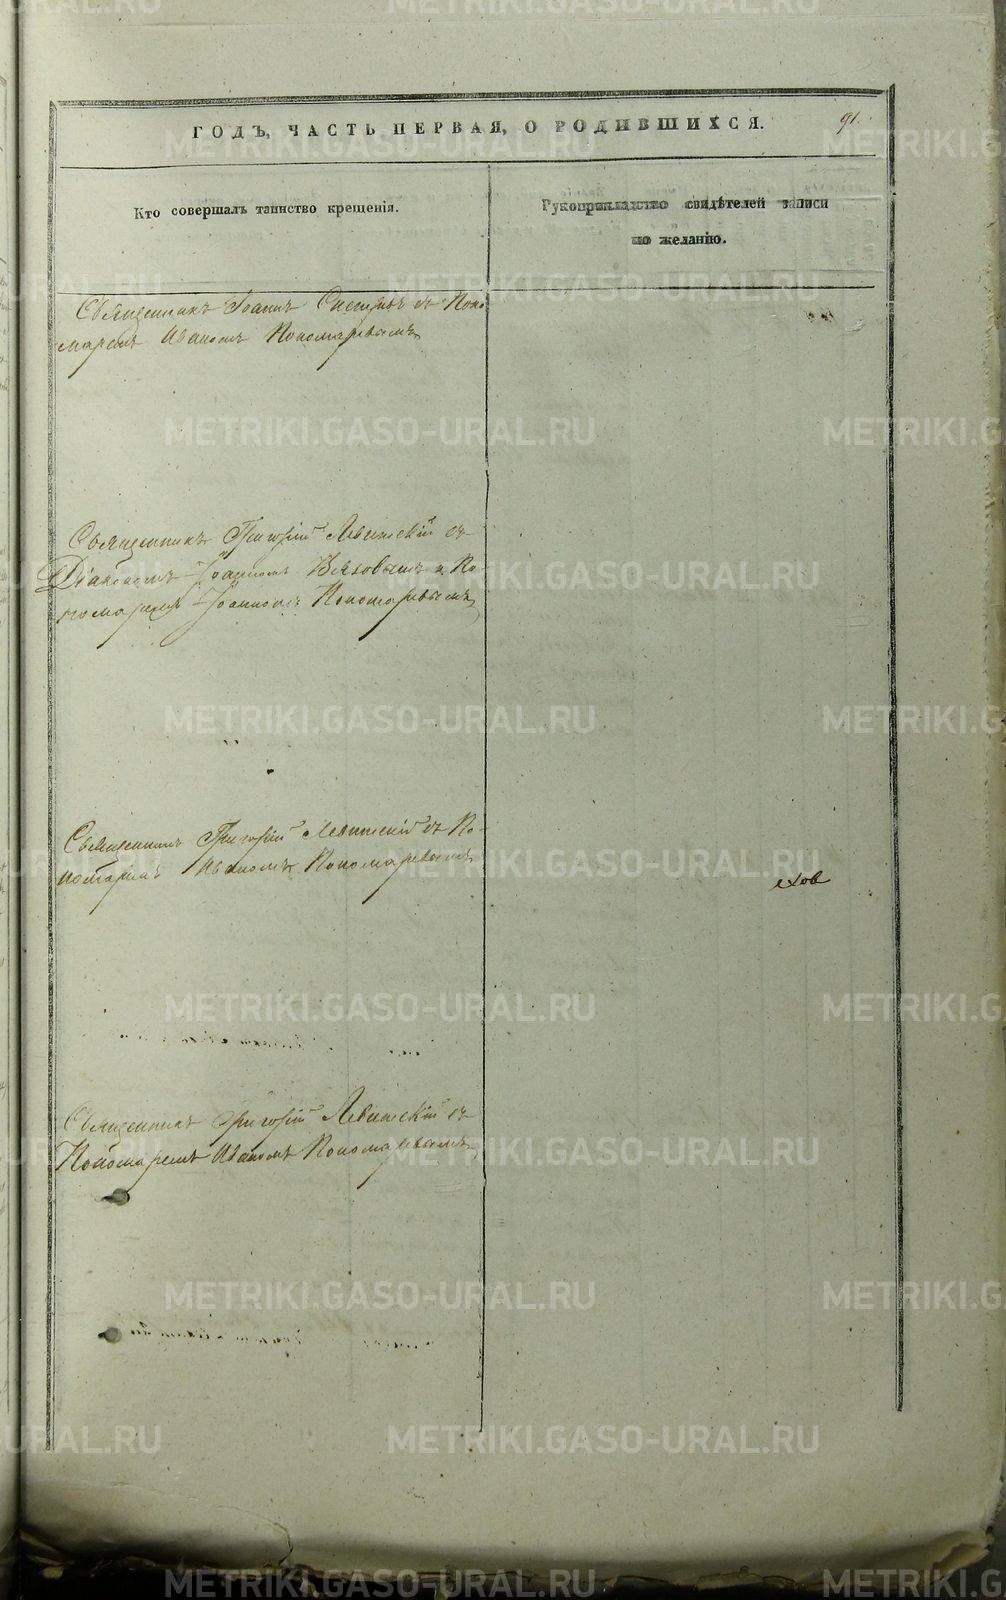 ГОДЪ, ЧАСТЬ ПЕРВАЯ, О РОДИВШИХСЯ.
91.
Кто совершалъ таинство крещенія.
Рукоприкладство свидѣтелей записи
по желанію.
Священникъ Іоаннъ съ Поно-
маремъ Иваномъ Пономаревымъ
Священникъ Григорій Левитскій съ
Діакономъ Іоанномъ и По-
номаремъ Іоанномъ Пономаревымъ
Священникъ Григорій Левитскій съ По-
номаремъ Иваномъ Пономаревымъ
ехов
Священникъ Григорій Левитскій съ
Пономаремъ Иваномъ Пономаревымъ
METRIKI.GASO-URAL.RU